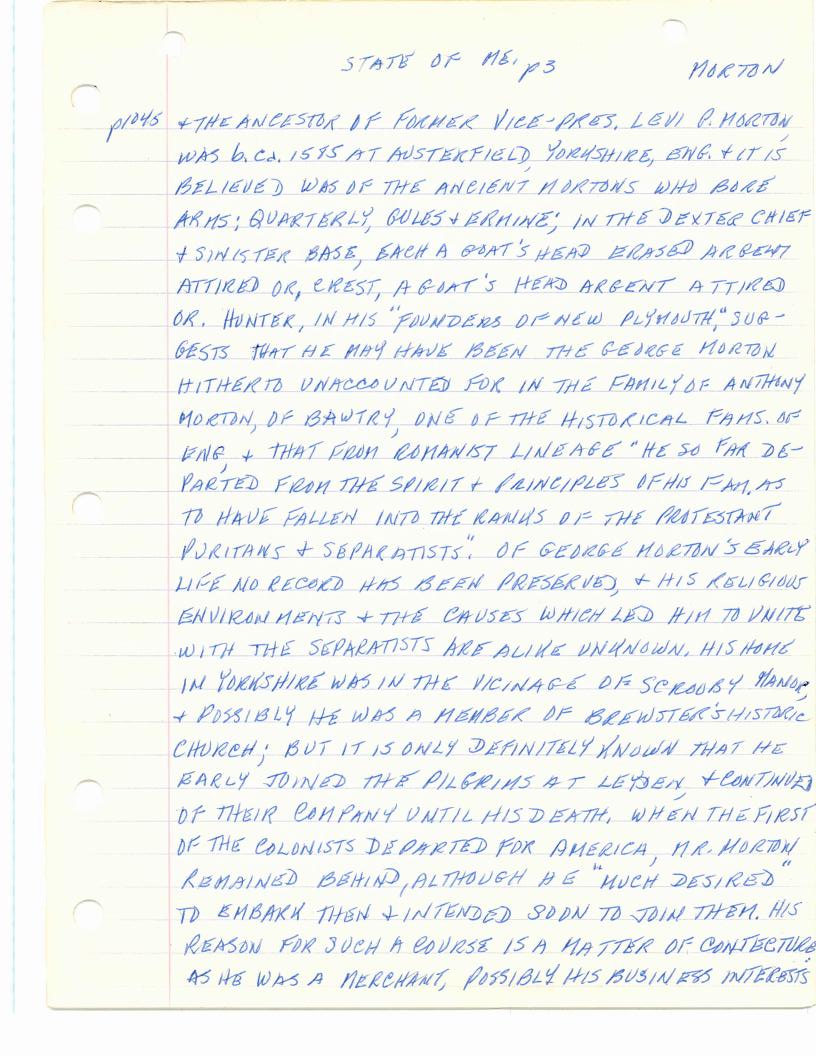 STATE OF ME, p3 MORTON
p1045 & THE ANCESTOR OF FORMER VICE-PRES. LEVI P. MORTON,
WAS b. ca. 1585 AT AUSTERFIELD, YORKSHIRE, ENG. & IT IS
BELIEVED WAS OF THE ANCIENT MORTONS WHO BORE
ARMS; QUARTERLY, GULES & ERMINE; IN THE DEXTER CHIEF
& SINISTER BASE, EACH A GOAT'S HEAD ERASED ARGENT
ATTIRED OR, CREST, A GOAT'S HEAD ARGENT ATTIRED
OR. HUNTER, IN HIS "FOUNDERS OF NEW PLYMOUTH," SUG-
GESTS THAT HE MAY HAVE BEEN THE GEORGE MORTON
HITHERTO UNACCOUNTED FOR IN THE FAMILY OF ANTHONY
MORTON, OF BAWTRY, ONE OF THE HISTORICAL FAMS. OF
ENG, & THAT FROM ROMANIST LINEAGE "HE SO FAR DE-
PARTED FROM THE SPIRIT & PRINCIPLES OF HIS FAM. AS
TO HAVE FALLEN INTO THE RANKS OF THE PROTESTANT
PURITANS & SEPARATISTS". OF GEORGE MORTON'S EARLY
LIFE NO RECORD HAS BEEN PRESERVED, & HIS RELIGIOUS
ENVIRONMENTS & THE CAUSES WHICH LED HIM TO UNITE
WITH THE SEPARATISTS ARE ALIKE UNKNOWN. HIS HOME
IN YORKSHIRE WAS IN THE VICINAGE OF SCROOBY MANOR,
& POSSIBLY HE WAS A MEMBER OF BREWSTER'S HISTORIC
CHURCH; BUT IT IS ONLY DEFINITELY KNOWN THAT HE
EARLY JOINED THE PILGRIMS AT LEYDEN, & CONTINUED
OF THEIR COMPANY UNTIL HIS DEATH. WHEN THE FIRST
OF THE COLONISTS DEPARTED FOR AMERICA, MR. MORTON
REMAINED BEHIND, ALTHOUGH HE "MUCH DESIRED"
TO EMBARK THEN & INTENDED SOON TO JOIN THEM. HIS
REASON FOR SUCH A COURSE IS A MATTER OF CONTECTURE
AS HE WAS A MERCHANT, POSSIBLY HIS BUSINESS INTERESTS